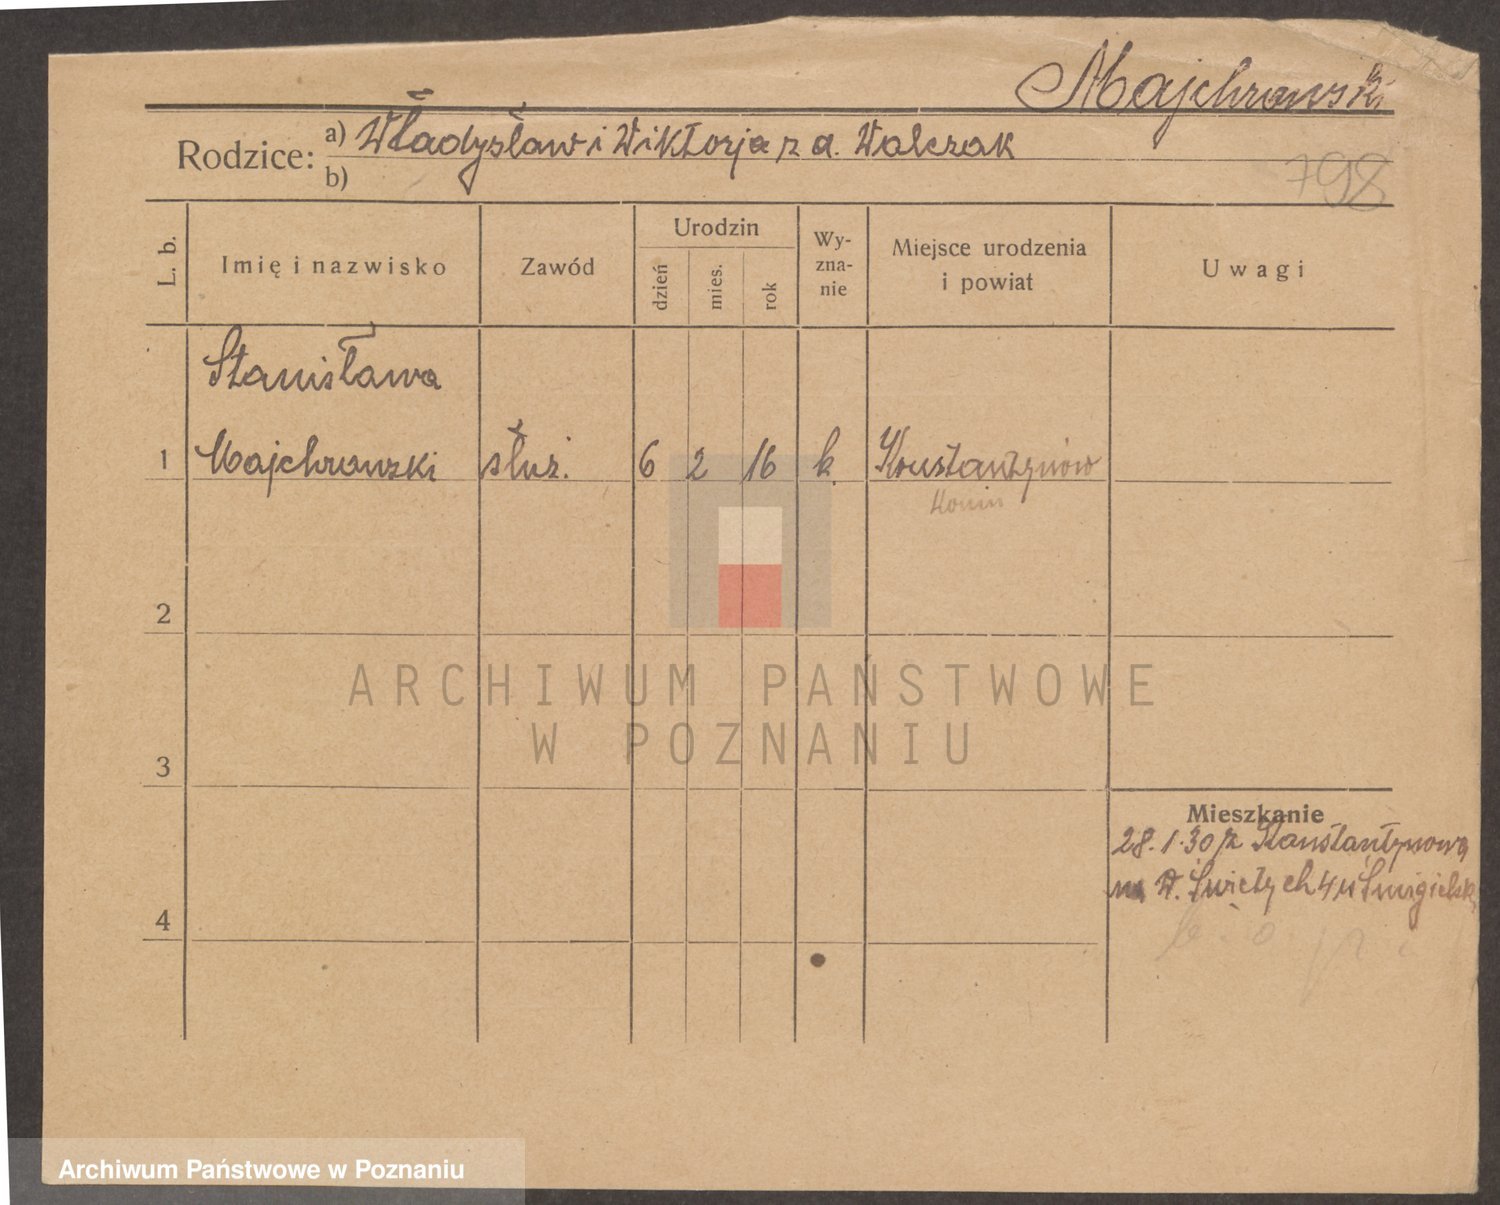 Majchrowski
Rodzice:
a) Władysław i Wiktorja z d. Walczak
b)
798
L. b.
Imię i nazwisko
Zawód
Urodzin
dzień
mies.
rok
Wy-
zna-
nie
Miejsce urodzenia
i powiat
Uwagi
Stanisława
1 Majchrowski służ. 6 2 16 k. Konstantynów
Konin
2
ARCHIWUM PAŃSTWOWE
W POZNANIU
3
Mieszkanie
28.1.30 z Konstantynowa
na W. Świętych 4 u Śmigielsk
4
Archiwum Państwowe w Poznaniu